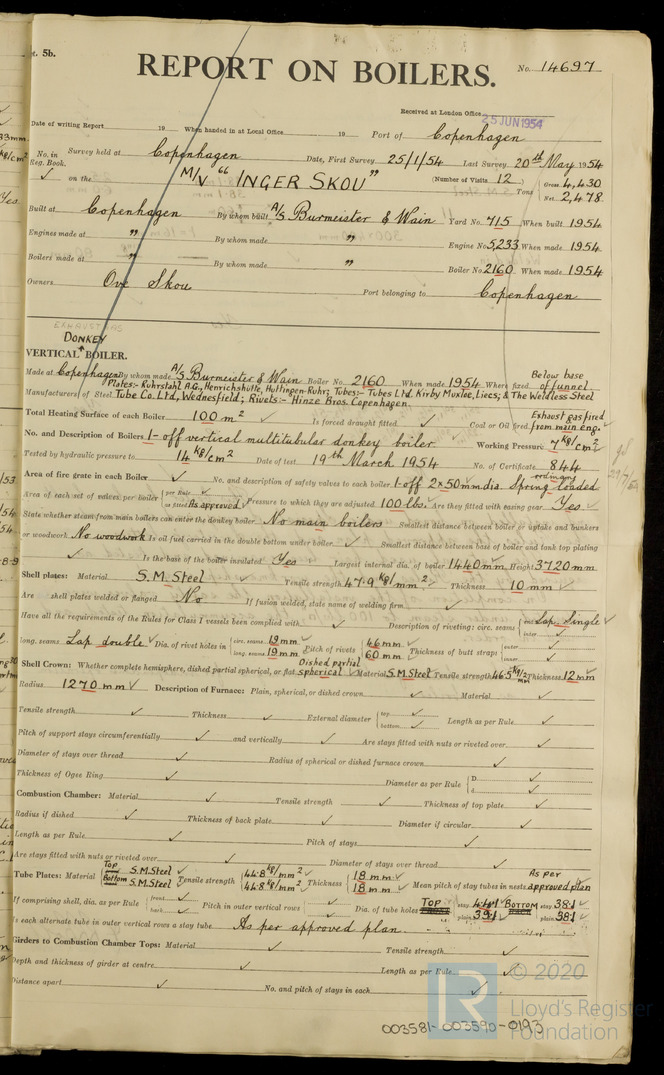 5b.
REPORT ON BOILERS.
No. 14697
Received at London Office 25 JUN 1954
Date of writing Report 19 When handed in at Local Office 19 Port of Copenhagen
No. in Reg. Book. Survey held at Copenhagen Date, First Survey 25/1/54 Last Survey 20th May 1954
✓ on the M/V "INGER SKOU" (Number of Visits 12) Tons Gross 4,430 Net 2,478
Built at Copenhagen By whom built A/S Burmeister & Wain Yard No. 715 When built 1954
Engines made at " By whom made " Engine No 5,233 When made 1954
Boilers made at " By whom made " Boiler No. 2160 When made 1954
Owners Ove Skou Port belonging to Copenhagen
EXHAUST GAS
DONKEY
VERTICAL BOILER.
Made at Copenhagen By whom made A/S Burmeister & Wain Boiler No. 2160 When made 1954 Where fixed Below base of funnel
Plates:- Ruhrstahl A.G., Henrichshütte, Hattingen-Ruhr; Tubes:- Tubes Ltd. Kirby Muxloe, Liecs; & The Weldless Steel
Manufacturers of Steel Tube Co. Ltd., Wednesfield; Rivets:- Hinze Bros. Copenhagen.
Total Heating Surface of each Boiler 100 m² Is forced draught fitted ✓ Coal or Oil fired Exhaust gas fired from main eng.
No. and Description of Boilers 1-off vertical multitubular donkey boiler Working Pressure 7 kg/cm²
Tested by hydraulic pressure to 14 kg/cm² Date of test 19th March 1954 No. of Certificate 844
Area of fire grate in each Boiler ✓ No. and description of safety valves to each boiler 1-off 2x50mm dia. ordinary Spring loaded
Area of each set of valves per boiler per Rule ✓ as fitted As approved Pressure to which they are adjusted 100 lbs. Are they fitted with easing gear Yes
State whether steam from main boilers can enter the donkey boiler No main boilers Smallest distance between boiler or uptake and bunkers
or woodwork No woodwork Is oil fuel carried in the double bottom under boiler ✓ Smallest distance between base of boiler and tank top plating
✓ Is the base of the boiler insulated Yes Largest internal dia. of boiler 1440mm Height 3720 mm
Shell plates: Material S.M. Steel Tensile strength 47.9 kg/mm² Thickness 10 mm
Are shell plates welded or flanged No If fusion welded, state name of welding firm ✓
Have all the requirements of the Rules for Class I vessels been complied with ✓ Description of riveting: circ. seams end Lap, Single inter ✓
long. seams Lap double Dia. of rivet holes in circ. seams 19mm long. seams 19mm Pitch of rivets 46mm 60mm Thickness of butt straps outer ✓ inner ✓
Shell Crown: Whether complete hemisphere, dished partial spherical, or flat Dished partial spherical Material S.M.Steel Tensile strength 46.5 kg/mm² Thickness 12mm
Radius 1270 mm Description of Furnace: Plain, spherical, or dished crown ✓ Material ✓
Tensile strength ✓ Thickness ✓ External diameter top ✓ bottom ✓ Length as per Rule ✓
Pitch of support stays circumferentially ✓ and vertically ✓ Are stays fitted with nuts or riveted over ✓
Diameter of stays over thread ✓ Radius of spherical or dished furnace crown ✓
Thickness of Ogee Ring ✓ Diameter as per Rule D ✓ d ✓
Combustion Chamber: Material ✓ Tensile strength ✓ Thickness of top plate ✓
Radius if dished ✓ Thickness of back plate ✓ Diameter if circular ✓
Length as per Rule ✓ Pitch of stays ✓
Are stays fitted with nuts or riveted over ✓ Diameter of stays over thread ✓
Tube Plates: Material Top S.M.Steel Bottom S.M.Steel Tensile strength 44.8 kg/mm² 44.8 kg/mm² Thickness 18 mm 18 mm Mean pitch of stay tubes in nests As per approved plan
If comprising shell, dia. as per Rule front ✓ back ✓ Pitch in outer vertical rows ✓ Dia. of tube holes TOP stay 44.1 plain 39.1 BOTTOM stay 38.1 plain 38.1
Is each alternate tube in outer vertical rows a stay tube As per approved plan
Girders to Combustion Chamber Tops: Material ✓ Tensile strength ✓
Depth and thickness of girder at centre ✓ Length as per Rule ✓
Distance apart ✓ No. and pitch of stays in each ✓
003581-003590-0193
LR © 2020
Lloyd's Register
Foundation